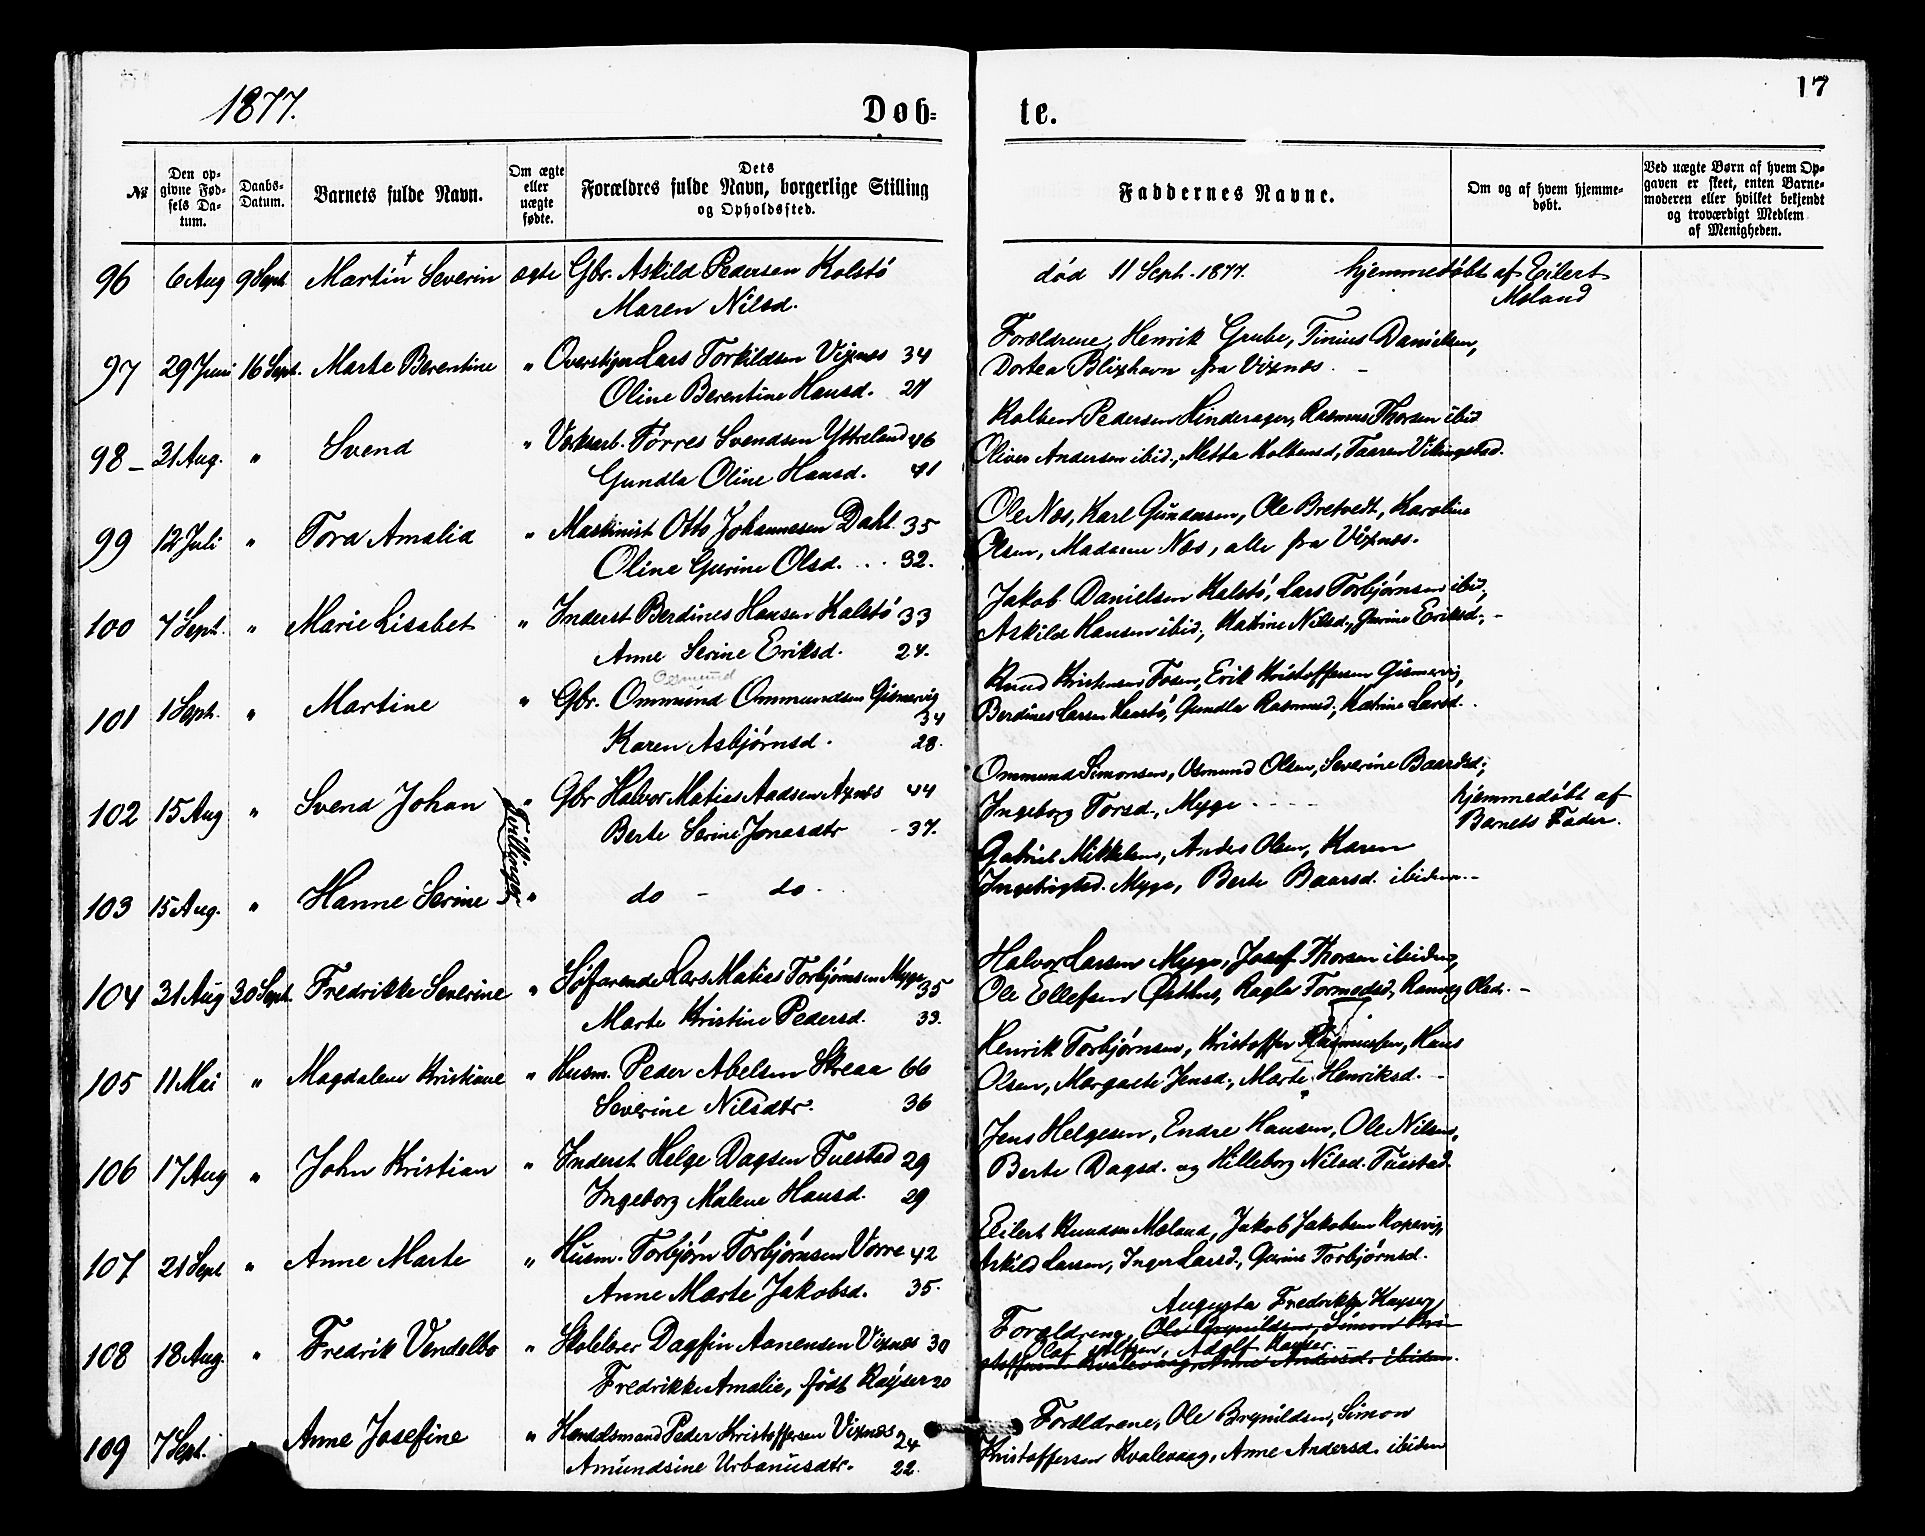 17
1877. Døb- te.
№
Den op-
givne Fød-
sels Da-
tum.
Daabs-
Datum.
Barnets fulde Navn.
Om ægte
eller
uægte
fødte.
Dets
Forældres fulde Navn, borgerlige Stilling
og Opholdssted.
Faddernes Navne.
Om og af hvem hjemme-
døbt.
Ved uægte Børn af hvem Op-
gaven er skeet, enten Barne-
moderen eller hvilket bekjendt
og troværdigt Medlem
af Menigheden.
96 6 Aug 9 Sept Martin † Severin ægte Gbr. Askild Pedersen Kolstø
Maren Nilsd.
død 11 Sept. 1877. hjemmedøbt af Eilert
Moland
97 29 Juni 16 Sept. Marte Berentine " Overstiger Lars Torkildsen Vixnes 34
Oline Berentine Hansd. 21
Forældrene, Henrik Grube, Tinius Danielsen,
Dortea Blixhavn fra Vixnes. -
98 - 31 Aug. " Svend " Verksarb. Tørres Svendsen Yttreland 46
Gundla Oline Hansd. 41
Kolben Pedersen Hinderager, Rasmus Thorsen ibid
Oliver Andersen ibid., Metta Kolbensd, Taaren Vikingstad.
99 12 Juli " Tora Amalia " Maskinist Otto Johannesen Dahl 35
Oline Gurine Olsd. . . . 32.
Ole Næs, Karl Gundersen, Ole Bretvedt, Karoline
Olsen, Madame Næs, alle fra Vixnes.
100 7 Sept. " Marie Lisabet " Inderst Berdines Hansen Kalstø 33
Anne Serine Eriksd. 24.
Jakob Danielsen Kalstø, Lars Torbjørnsen ibid,
Askild Hansen ibid., Katrine Nilsd., Gurine Eriksd., -
101 1 Sept. " Martine " Gbr. Ommund Ommundsen Gismervig
Osmund
34
Karen Asbjørnsd. 28.
Knud Kristensen Fosen, Erik Kristoffersen Gismervig,
Berdines Larsen Haastø, Gundla Rasmusd., Katrine Larsd. .
102 15 Aug " Svend Johan " Gbr Halvor Matias Aadsen Axnes 44
Berte Serine Jonasdtr - 37.
Tvillinger
Ommund Simonsen, Osmund Olsen, Severine Baardsd.,
Ingeborg Torsd., Myge - - - -
hjemmedøbt af
Barnets Fader.
103 15 Aug. " Hanne Serine " do - do -
Gabriel Mikkelsen, Anders Olsen, Karen
Ingebrigtsd. Myge, Berte Baarsd. ibidem -
104 31 Aug 30 Sept. Fredrikke Severine " Søfarende Lars Matias Torbjørnsen Myge 35
Marte Kristine Pedersd. 33.
Halvor Larsen Myge, Josef Thorsen ibidem,
Ole Ellefsen Østhus, Ragla Tormodsd, Ranveg Olsd. -
105 11 Mai " Magdalene Kristiane " Husm. Peder Abelsen Skreaa 66
Severine Nilsdtr. 36
Henrik Torbjørnsen, Kristoffer Rasmussen, Hans
Olsen, Margaete Jensd., Marte Henriksd. -
106 17 Aug " John Kristian " Inderst Helge Dagsen Tuestad 29
Ingeborg Malene Hansd. 29
Jens Helgesen, Endre Hansen, Ole Nilsen,
Berte Dagsd. og Hilleborg Nilsd. Tuestad.
107 21 Sept " Anne Marte " Husm. Torbjørn Torbjørnsen Vorre 42
Anne Marte Jakobsd. 35.
Eilert Knudsen Moland, Jakob Jakobsen Kopervig,
Askild Larsen, Inger Larsd., Gurine Torbjørnsd.
108 18 Aug. " Fredrik Vendelbo " Skolelærer Dagfin Aanensen Vixnes 30
Fredrikke Amalie, født Kayser 20
Augusta Fredrikke Kayser,
Forældrene, Ole Brynildsen, Simon Kri-
Olaf Olsen, Adolf Kayser. -
stoffersen Kvalevaag, Anne Andersd. ibidem.
109 7 Sept. " Anne Josefine " Handelsmand Peder Kristoffersen Vixnes 24
Amundsine Urbanusdtr. 22.
Forældrene, Ole Brynildsen, Simon
Kristoffersen Kvalevaag, Anne Andersd. ibidem